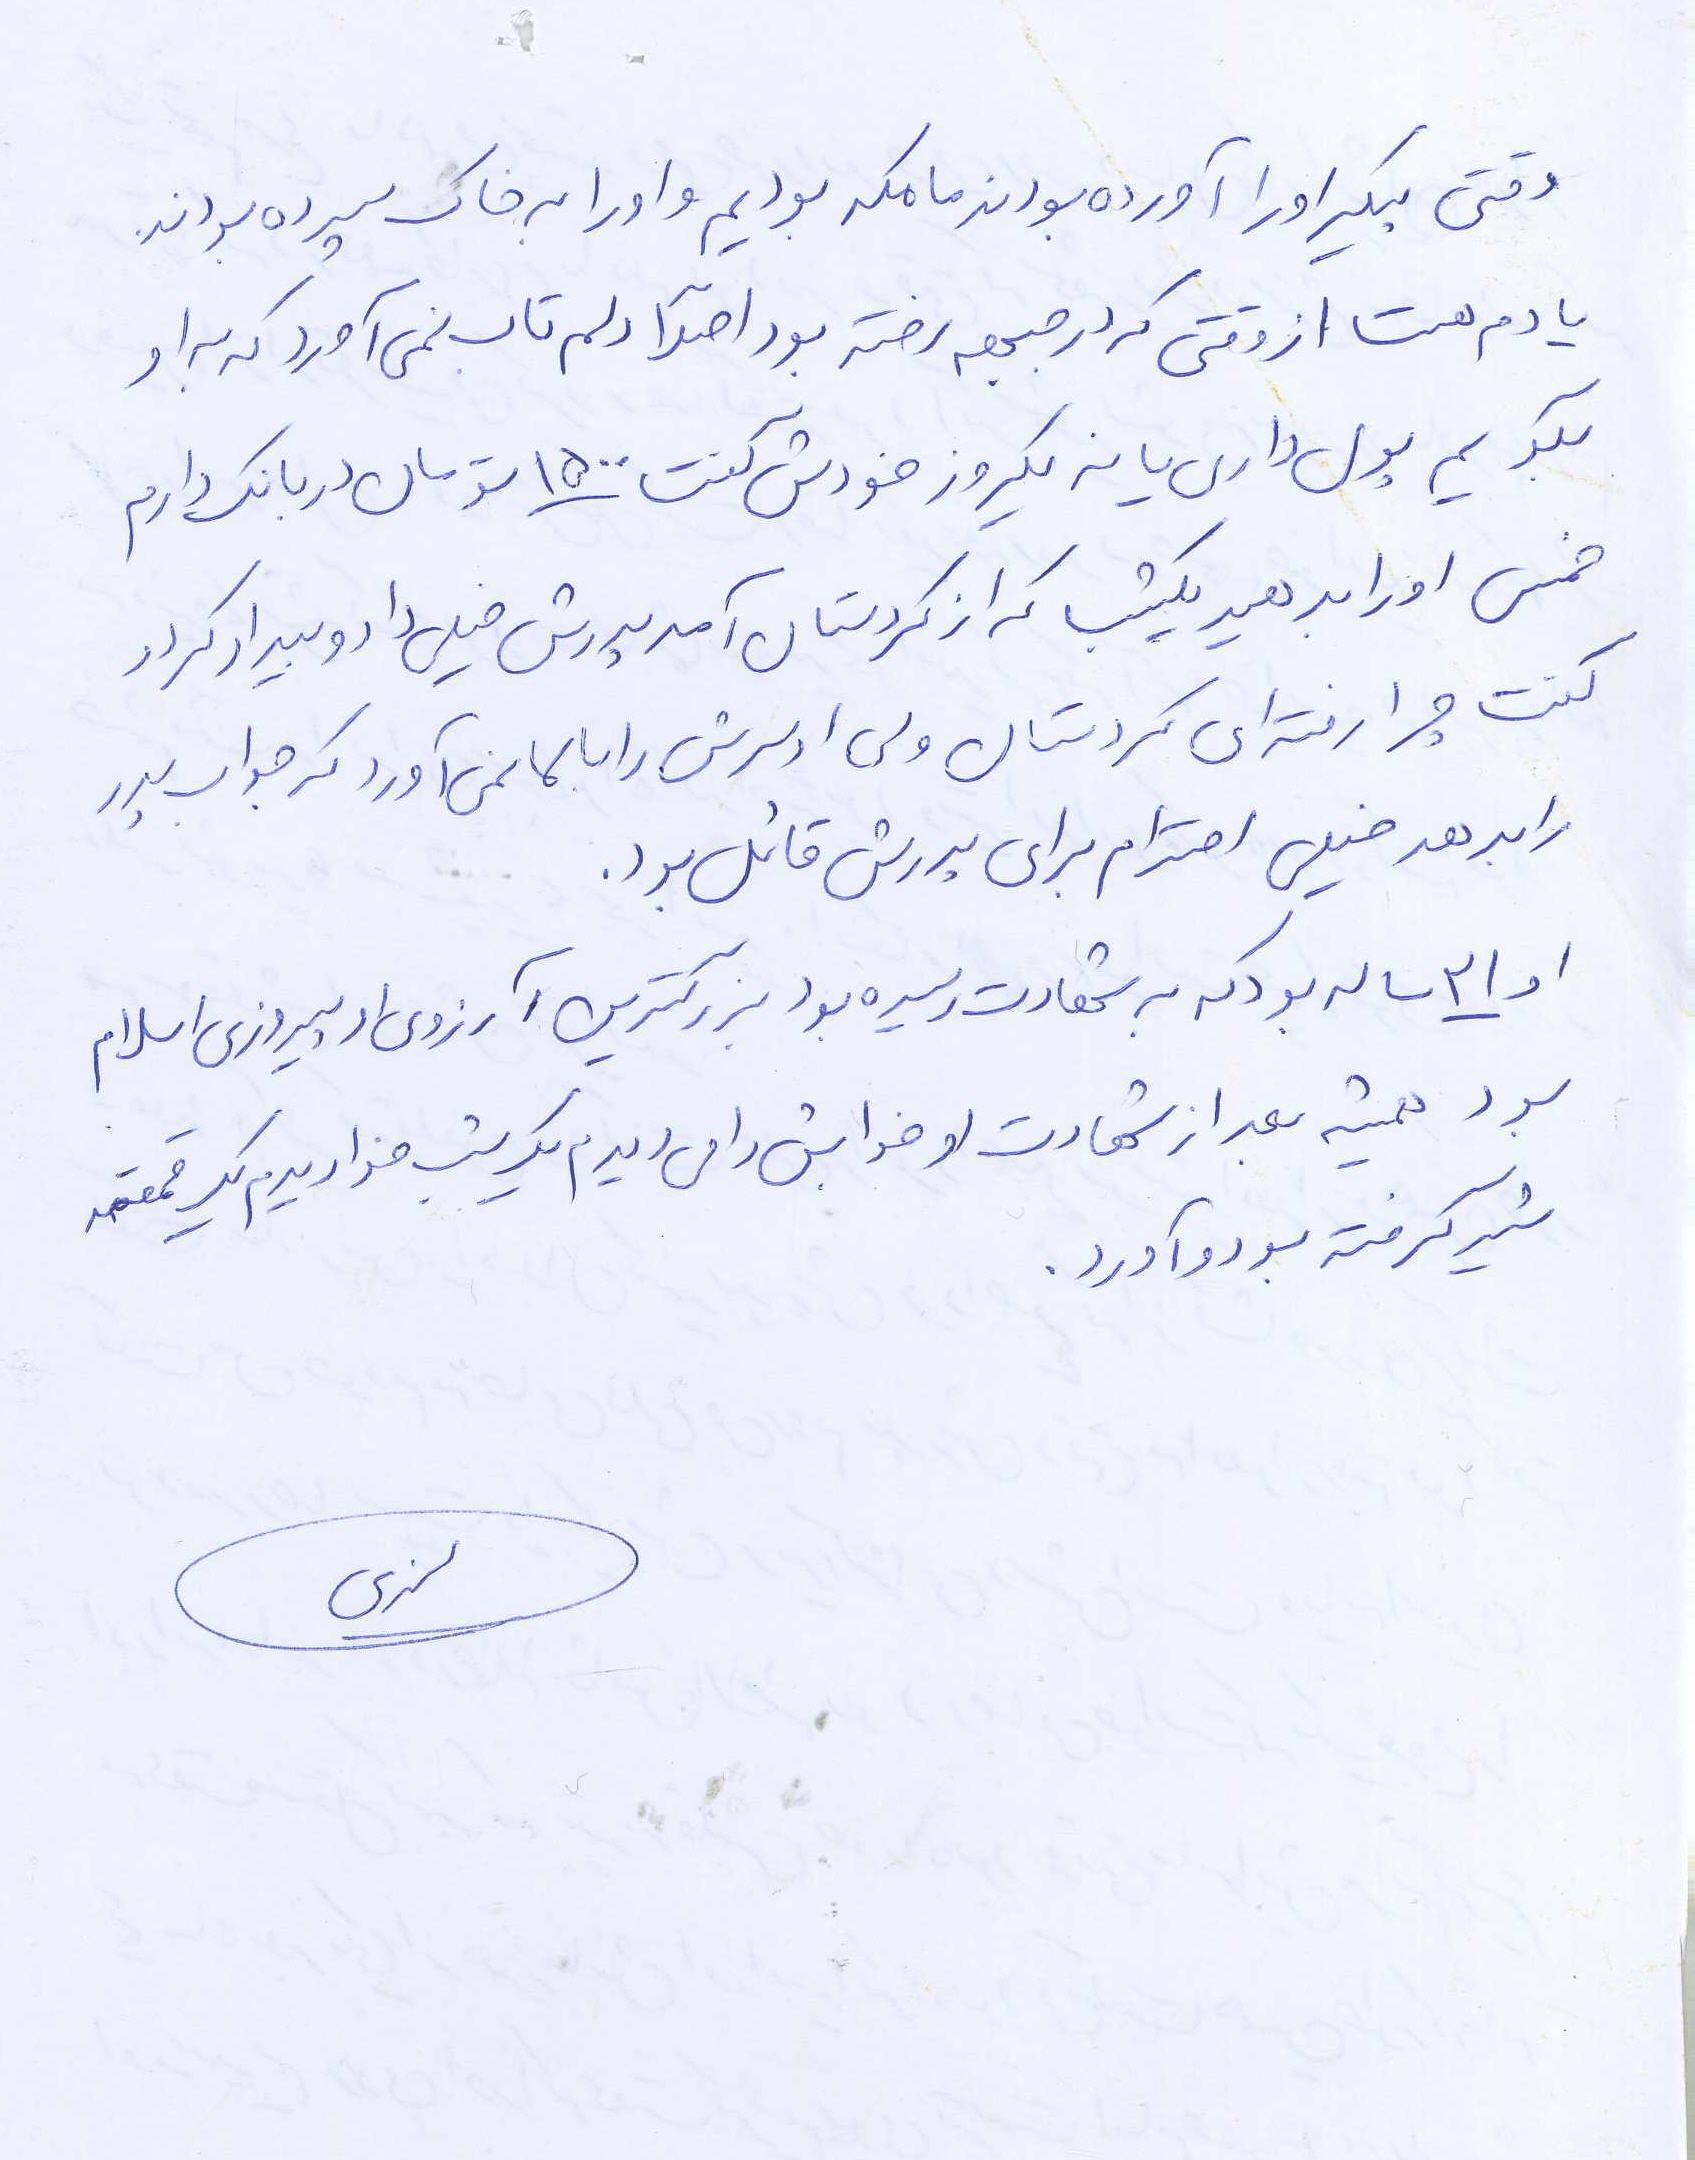 وقتی پیکر او را آورده بودند ما مکه بودیم و او را به خاک سپرده بودند.
یادم هست از وقتی که در جبهه رفته بود اصلاً دلم تاب نمی آورد که به او
بگویم پول داری یا نه یکروز خودش گفت ۱۵۰۰ تومان در بانک دارم
خمس او را بدهید یکشب که از کردستان آمد پدرش خیلی داد و بیداد کرد
گفت چرا رفته ای کردستان ولی او سرش را بالا نمی آورد که جواب پدر
را بدهد خیلی احترام برای پدرش قائل بود.
او ۲۱ ساله بود که به شهادت رسیده بود بزرگترین آرزوی او پیروزی اسلام
بود همیشه بعد از شهادت او خوابش را می دیدم یک شب خواب دیدم یک قمقمه
شیر گرفته بود و آورد.